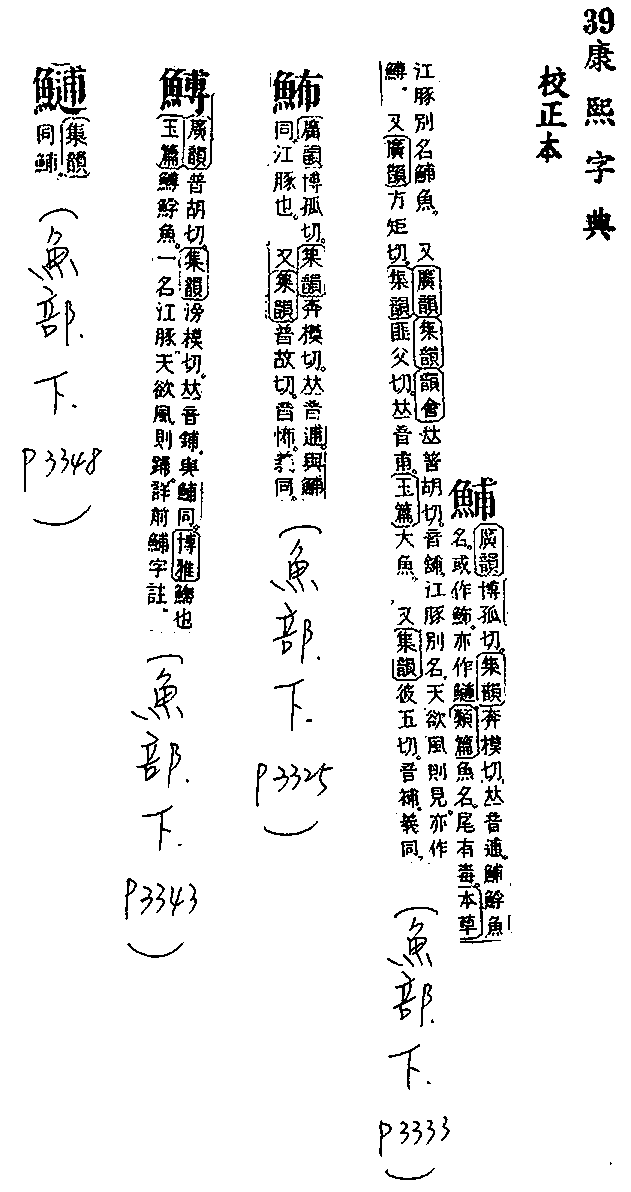 39康熙字典
校正本
鯆
廣韻博孤切集韻奔模切𠀤音逋鯆䱐魚
名或作鯆亦作𩺷類篇魚名尾有毒本草
江豚別名鯆魚 又廣韻集韻韻會𠀤普胡切音鋪江豚別名天欲風則見亦作
鱄 又廣韻方矩切集韻匪父切𠀤音甫玉篇大魚 又集韻彼五切音補義同
(魚部.下.P3333)
䱛
廣韻博孤切集韻奔模切𠀤音逋與鯆
同江豚也 又集韻普故切音怖義同
(魚部.下.P3325)
廣韻普胡切集韻滂模切𠀤音鋪與鯆同博雅鱄也
玉篇䱐魚一名江豚天欲風則踊詳前鯆字註
(魚部.下.P3343)
集韻
同鯆
(魚部.下.P3348)